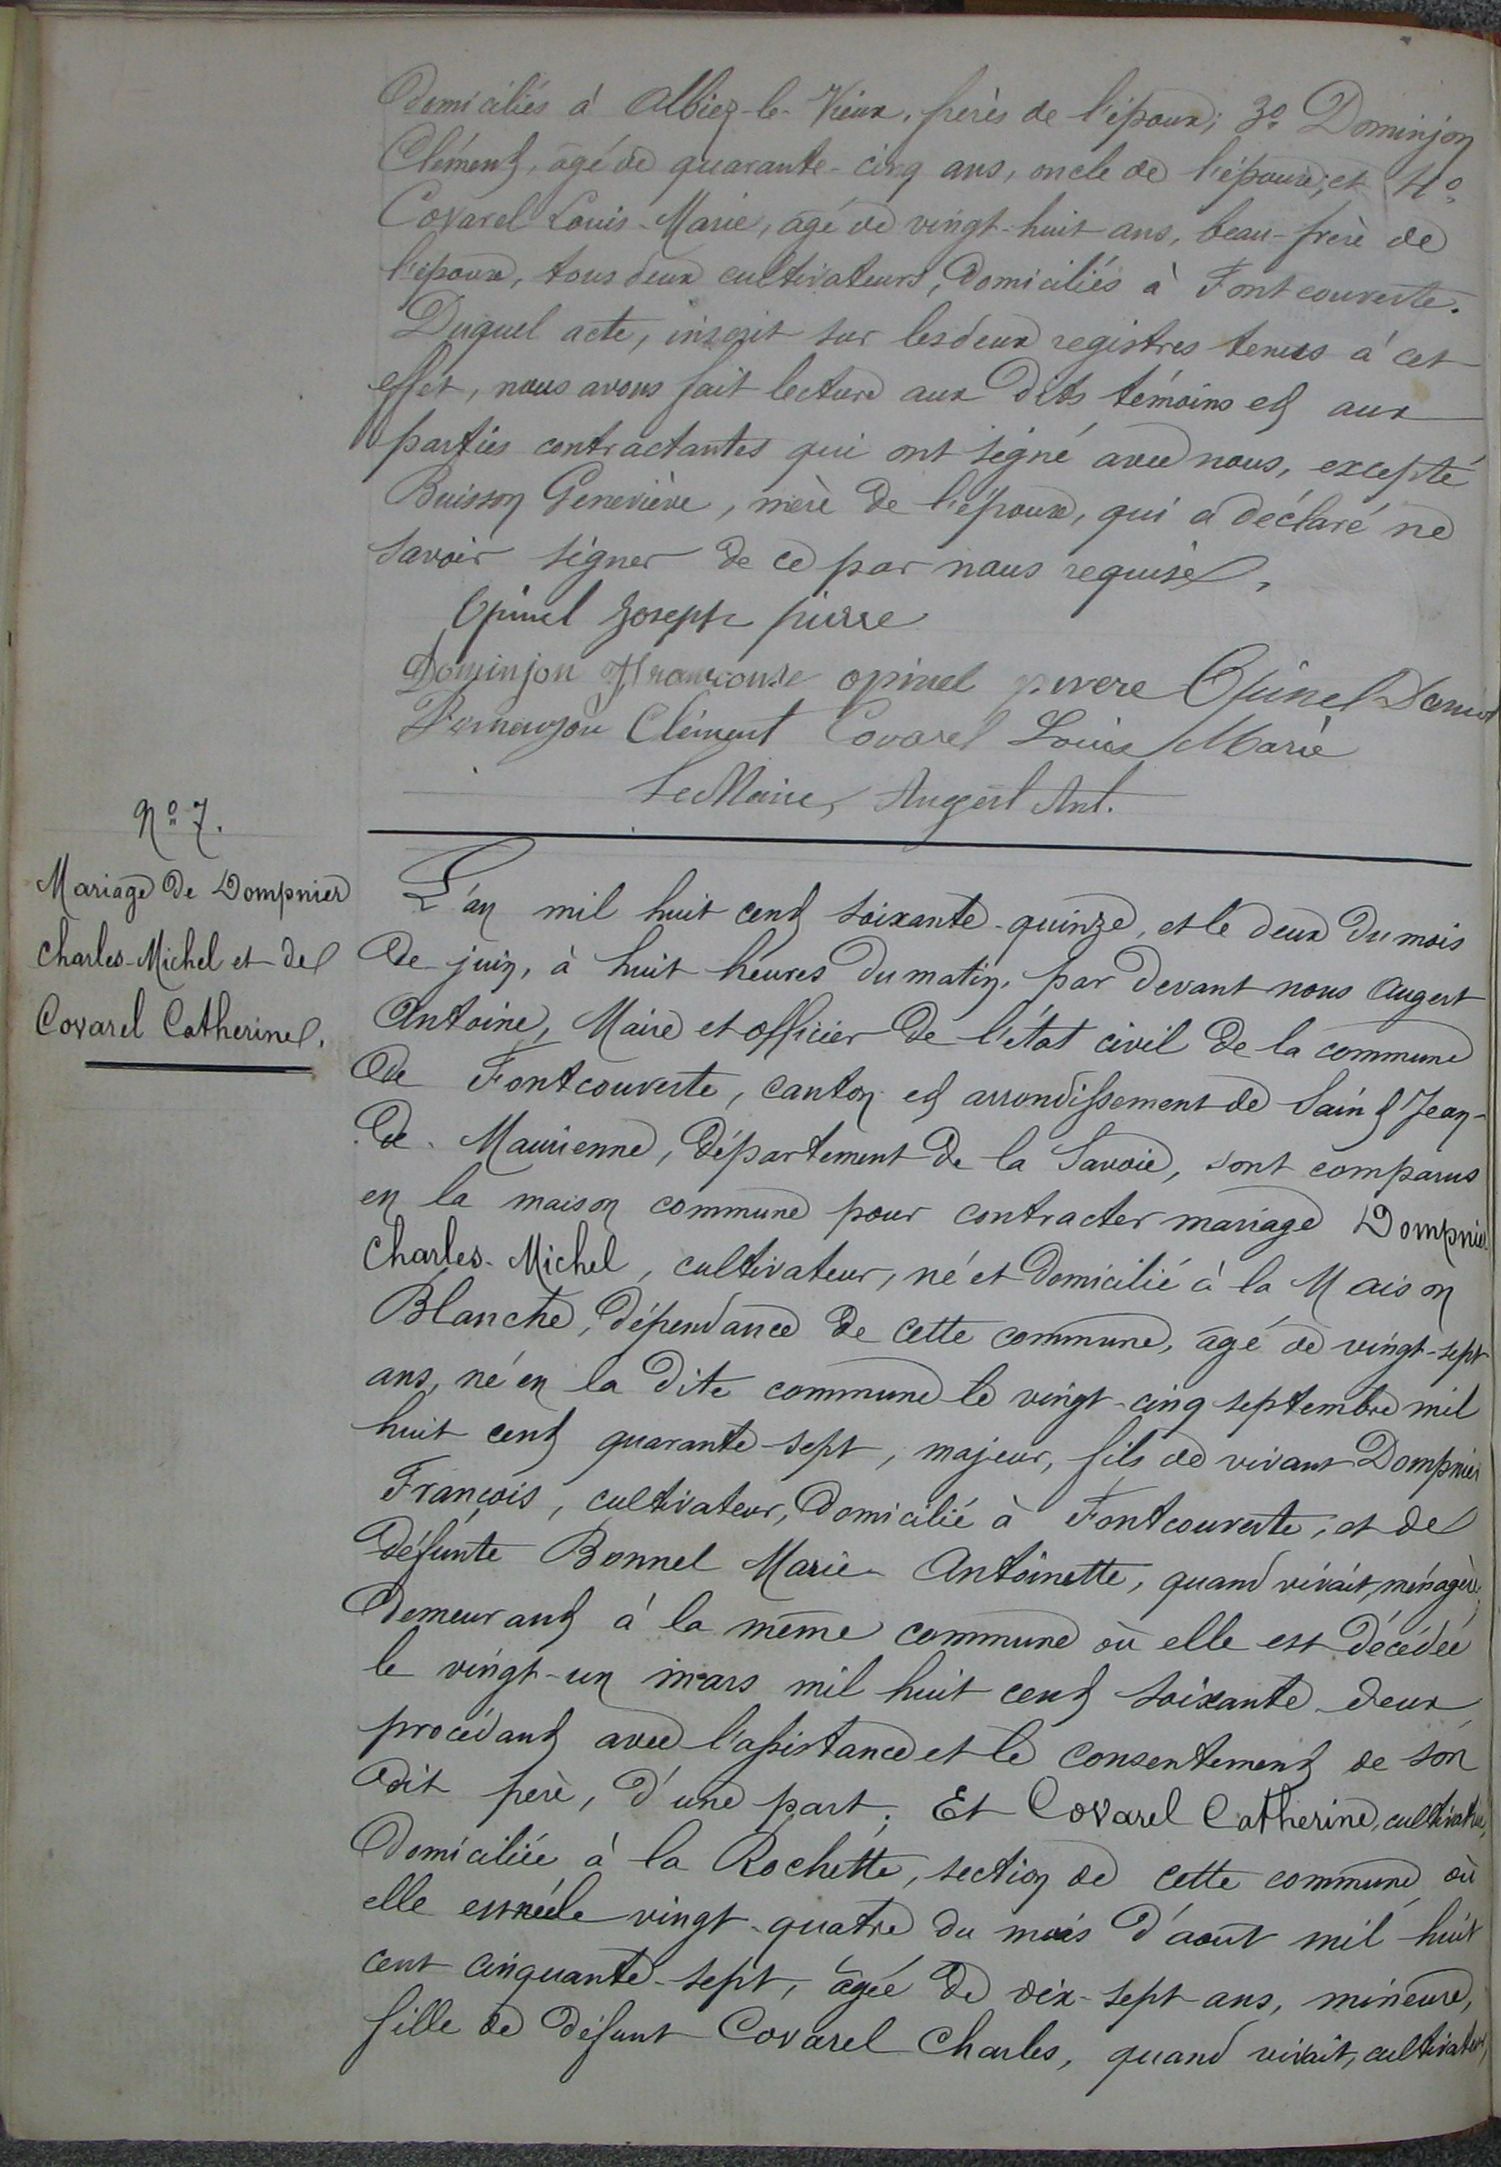 domiciliés à Albiez-le-Vieux, frères de l'époux; 3º Dominjon
Clément, âgé de quarante-cinq ans, oncle de l'épouse; et 4º
Covarel Louis-Marie, âgé de vingt-huit ans, beau-frère de
l'époux, tous deux cultivateurs, domiciliés à Fontcouverte.
Duquel acte, inscrit sur les deux registres tenus à cet
effet, nous avons fait lecture aux dits témoins et aux
parties contractantes qui ont signé avec nous, excepté
Buisson Geneviève, mère de l'époux, qui a déclaré ne
savoir signer de ce par nous requise.
Opinel Joseph pierre
Dominjon Francoise opinel Opinel
Clément Covarel Louis Marie
Le Maire, Augert Ant.
Nº 7.
Mariage de Dompnier
Charles-Michel et de
Covarel Catherine.
L'an mil huit cent soixante-quinze, et le deux du mois
de juin, à huit heures du matin, par devant nous Augert
Antoine, Maire et officier de l'état civil de la commune
de Fontcouverte, canton et arrondissement de Saint Jean-
de-Maurienne, département de la Savoie, sont comparus
en la maison commune pour contracter mariage Dompnier
Charles-Michel, cultivateur, né et domicilié à la Maison
Blanche, dépendance de cette commune, âgé de vingt-sept
ans, né en la dite commune le vingt-cinq septembre mil
huit cent quarante-sept, majeur, fils de vivant Dompnier
François, cultivateur, domicilié à Fontcouverte, et de
défunte Bonnel Marie-Antoinette, quand vivait, ménagère,
demeurant à la même commune où elle est décédée
le vingt-un mars mil huit cent soixante-deux
procédant avec l'assistance et le consentement de son
dit père, d'une part; Et Covarel Catherine, cultivatrice,
domiciliée à la Rochette, section de cette commune où
elle est née le vingt-quatre du mois d'août mil huit
cent cinquante-sept, âgée de dix-sept ans, mineure,
fille de défunt Covarel Charles, quand vivait, cultivateur,